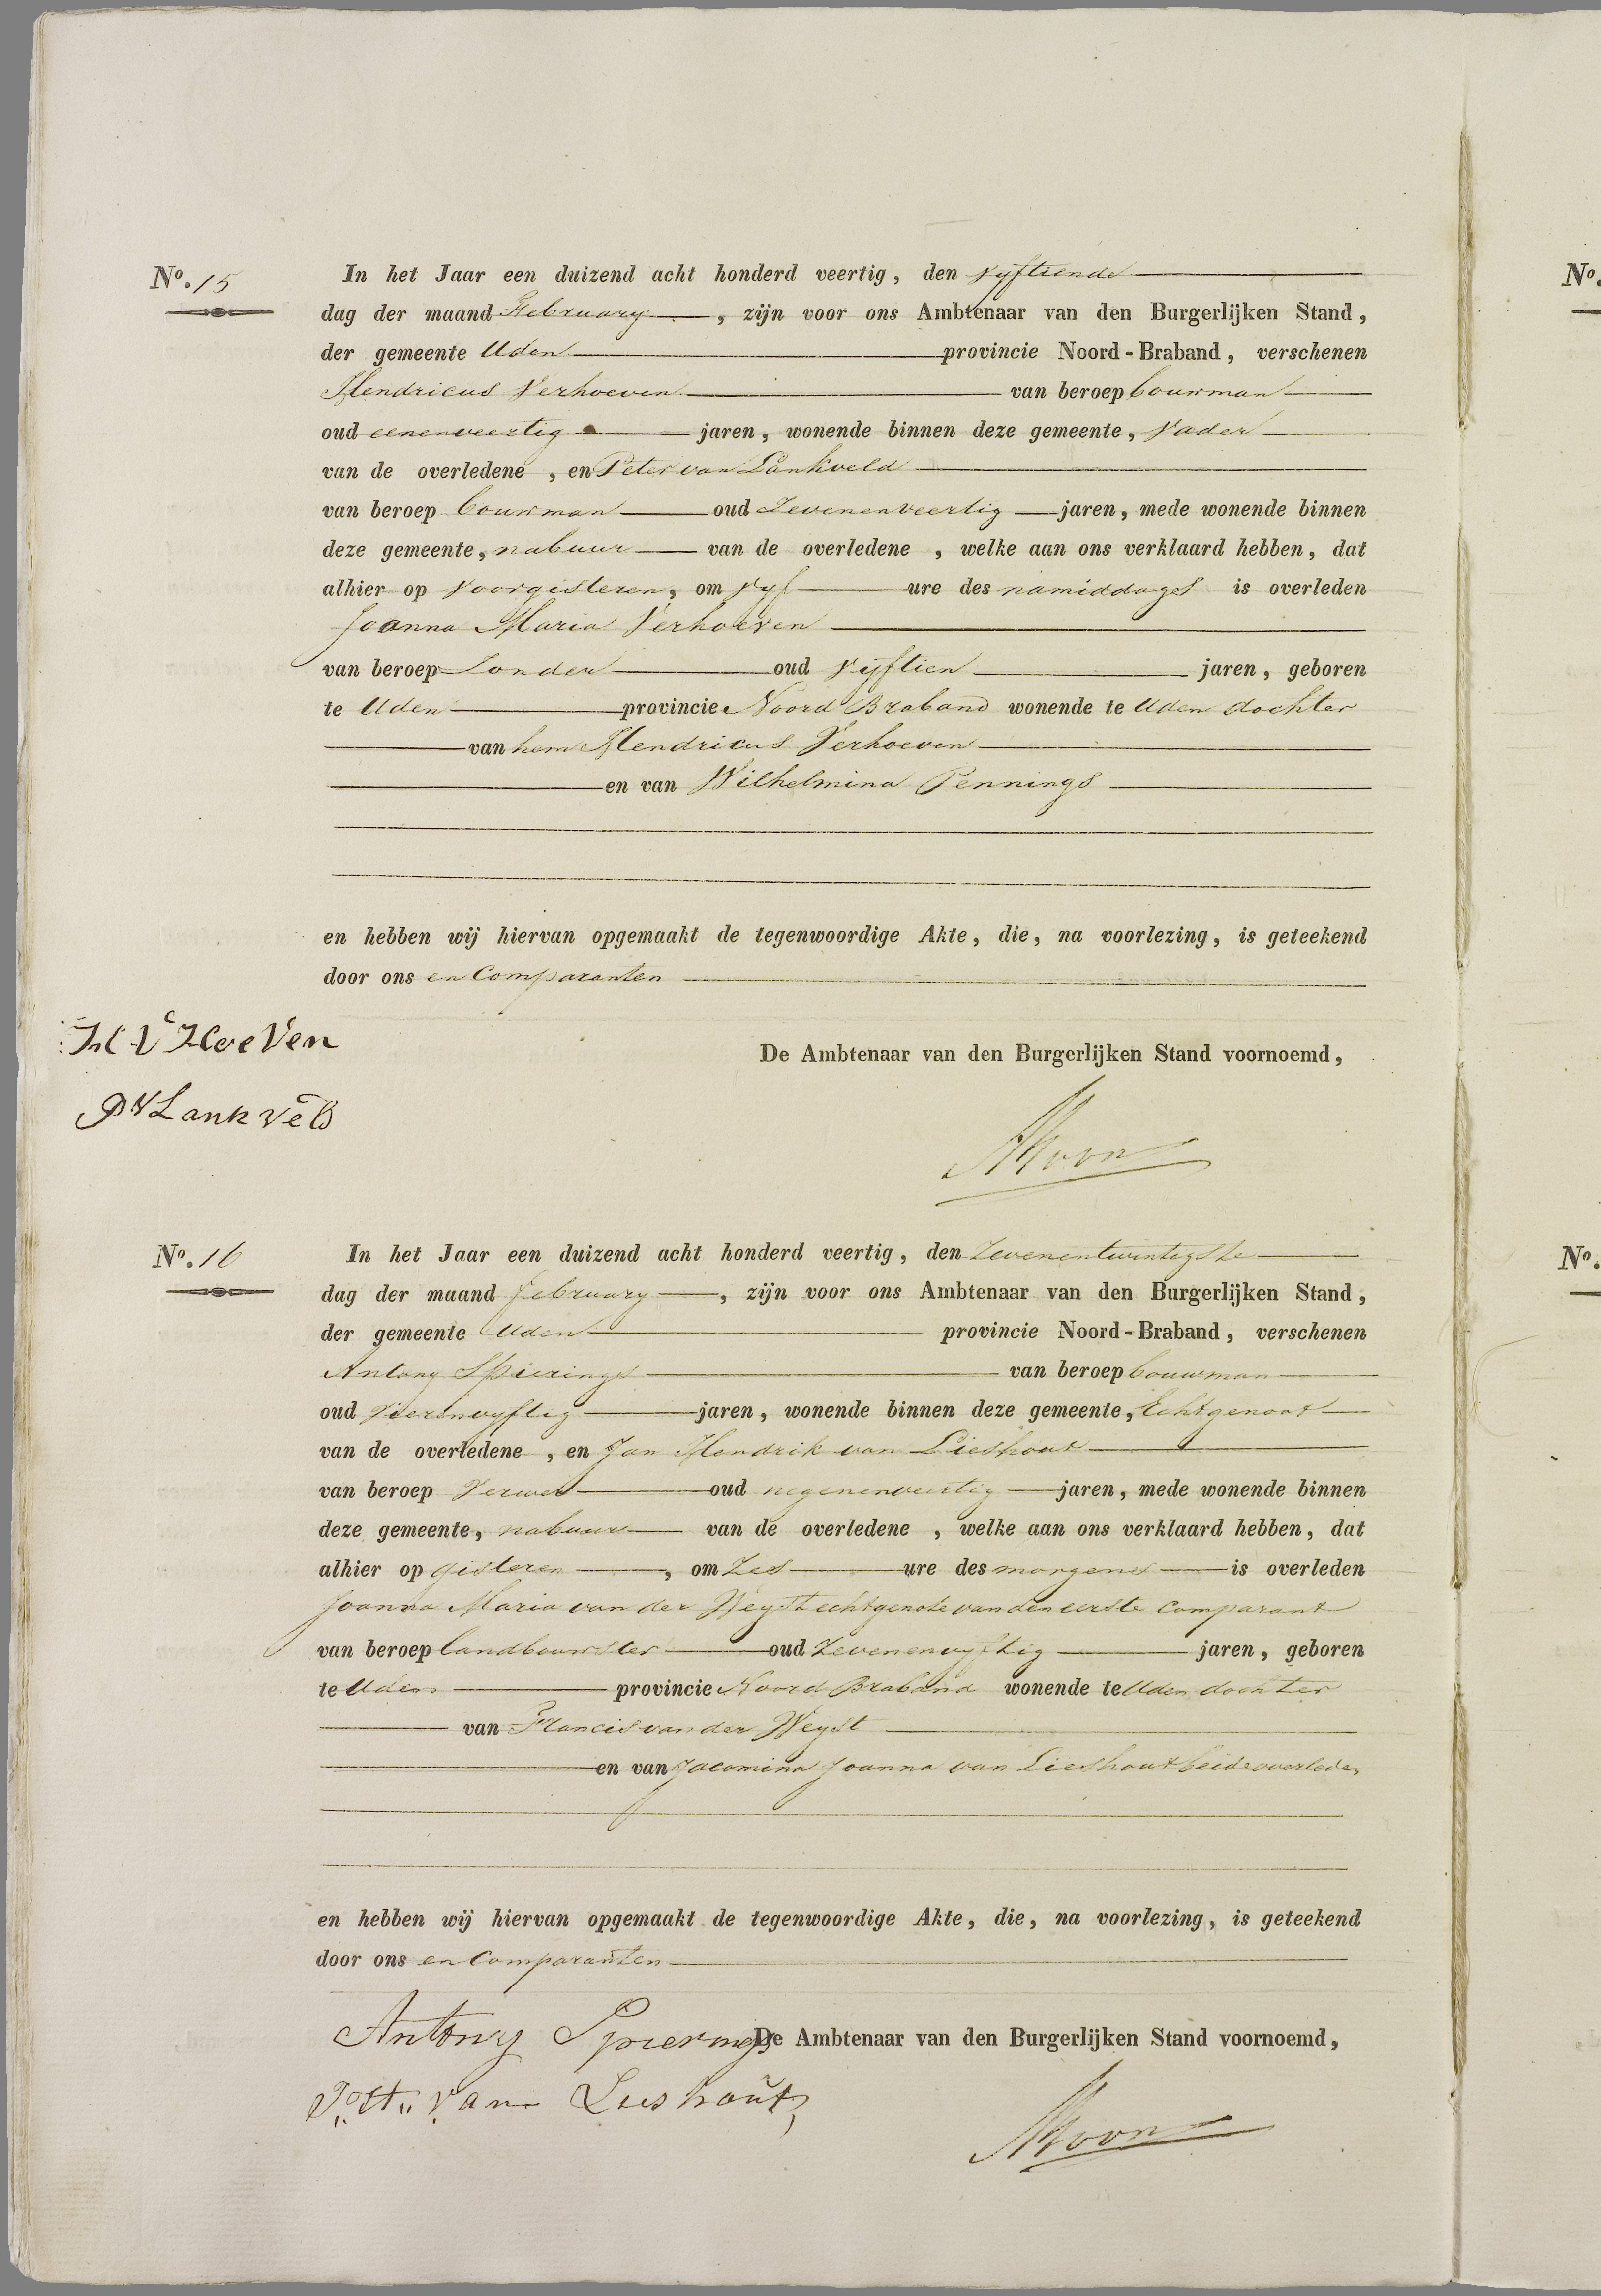 No. 15
In het Jaar een duizend acht honderd veertig, den vyftiende
dag der maand February, zijn voor ons Ambtenaar van den Burgerlijken Stand,
der gemeente Uden provincie Noord-Braband, verschenen
Hendricus Verhoeven van beroep bouwman
oud eenenveertig jaren, wonende binnen deze gemeente, vader
van de overledene, en Peter van Lankveld
van beroep bouwman oud Zevenenveertig jaren, mede wonende binnen
deze gemeente, nabuur van de overledene, welke aan ons verklaard hebben, dat
alhier op voorgisteren, om vyf ure des namiddags is overleden
Joanna Maria Verhoeven
van beroep Zonder oud vyftien jaren, geboren
te Uden provincie Noord Braband wonende te Uden dochter
van hem Hendricus Verhoeven
en van Wilhelmina Pennings
en hebben wij hiervan opgemaakt de tegenwoordige Akte, die, na voorlezing, is geteekend
door ons en Comparanten
H V Hoeven
De Ambtenaar van den Burgerlijken Stand voornoemd,
PV Lankveld
No. 16
In het Jaar een duizend acht honderd veertig, den Zevenentwintigste
dag der maand february, zijn voor ons Ambtenaar van den Burgerlijken Stand,
der gemeente Uden provincie Noord-Braband, verschenen
Antony Spierings van beroep bouwman
oud vierenvyftig jaren, wonende binnen deze gemeente, Echtgenoot
van de overledene, en Jan Hendrik van Lieshout
van beroep Verwer oud negenenveertig jaren, mede wonende binnen
deze gemeente, nabuur van de overledene, welke aan ons verklaard hebben, dat
alhier op gisteren, om Zes ure des morgens is overleden
Joanna Maria van der Weyst echtgenote van den eerste comparant
van beroep landbouwster oud Zevenenvyftig jaren, geboren
te Uden provincie Noord Braband wonende te Uden dochter
van Francis van der Weyst
en van Jacomina Joanna van Lieshout beide overleden
en hebben wij hiervan opgemaakt de tegenwoordige Akte, die, na voorlezing, is geteekend
door ons en Comparanten
Antony Spierings
De Ambtenaar van den Burgerlijken Stand voornoemd,
J. H. van Lieshout
No.
No.